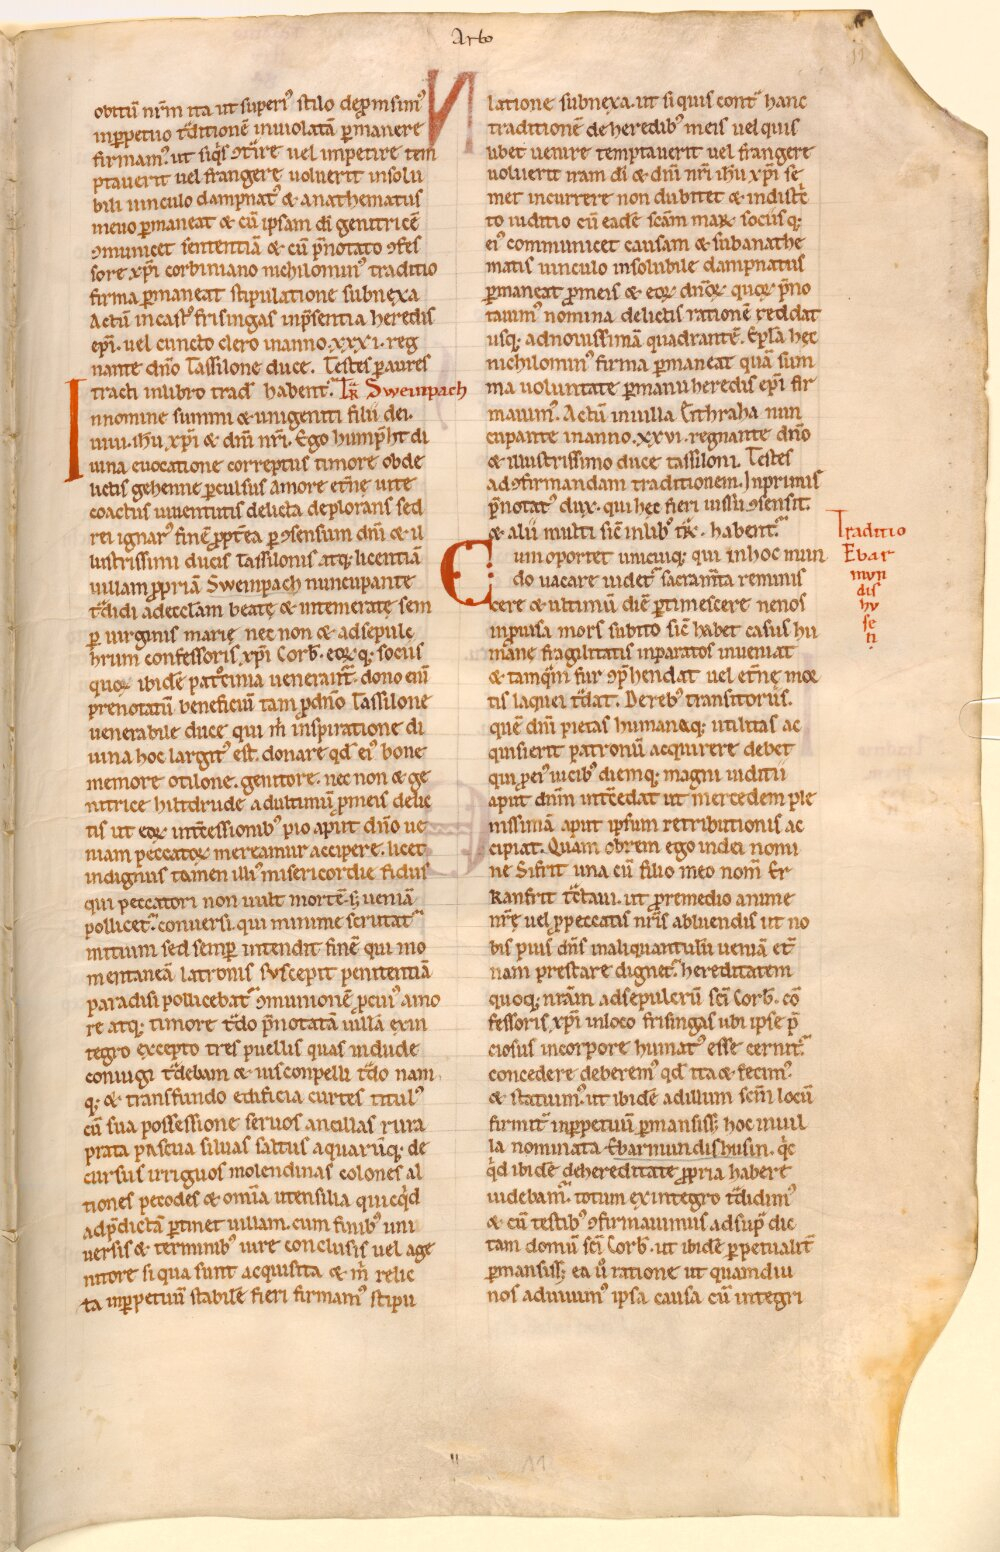 Arbo
11
obitū nr̄m ita ut superi⁹ stilo dep̄msim⁹
inꝑpetuo t̄ditionē inuiolatā ꝑmanere
firmam⁹. ut siq̇s ꝯt̄ire uel inpetire tem
ptauerit uel frangere uoluerit insolu
bili uinculo dampnat⁹ & anathematus
meuo ꝑmaneat & cū ipsam dī genitricē
ꝯmunicet sententiā & cū p̄notato ꝯfes
sore xp̄i corbiniano nichilomin⁹ traditio
firma ꝑmaneat stipulatione subnęxa
Actū incast⁹ frisingas inp̄sentia heredis
ep̄i. uel cuncto clero inanno .xxxi. reg
nante dn̄o Tassilone duce. Testes ꝑaures
tracti inlibro trad habent᷑. Tr̄ Sweinpach
Innomine summi & unigeniti filii dei
uiui. ih̄u xp̄i & dn̄i nr̄i. Ego hump̄ht di
uina euocatione correptus timore obde
uictis gehenne ꝑculsus amore et̄nę uite
coactus iuuentutis delicta deplorans sed
rei ignar⁹ finē ꝓpt̄ea ꝑ ꝯsensum dn̄i & il
lustrissimi ducis Tassilonis atq; licentiā
uillam ꝓpriā Sweinpach nuncupante
t̄didi adecclām beatę & intemeratę sem
ꝑ uirginis marię nec non & adsepulc
hrum confessoris xp̄i Corb̄. eoꝝ q; sociis
quoꝝ ibidē pat̄cinia ueneraint᷑. dono eni
prenotatū beneficiū tam ꝓdn̄o Tassilone
uenerabile duce qui m̄ inspiratione di
uina hoc largit⁹ est. donare qd̄ ei⁹ bone
memore otilone. genitore. nec non & ge
nitrice hiltdrude adultimū ꝓmeis delic
tis ut eoꝝ int̄cessionib⁹ pio aput dn̄o ue
niam peccatoꝝ mereamur accipere. licet
indignus tamen illi⁹ misericordie fidus
qui peccatori non uult mortē. s; ueniā
pollicet᷑. conuersi. qui minime scrutat᷑
initium sed semꝑ intendit finē qui mo
mentaneā latronis suscepit penitentiā
paradisi pollicebat᷑ ꝯmunionē ꝓcui⁹ amo
re atq; timore t̄do p̄notatā uillā exin
tegro excepto tres puellis quas indude
coniugi t̄debam & uisconpelli t̄do nam
q; & transfundo edificia curtes titul⁹
cū sua possessione seruos ancillas rura
prata pascua siluas saltus aquarūq; de
cursus irriguos molendinas colones al
tiones pecodes & om̄ia utensilia quicq̇d
adp̄dictā ꝑtinet uillam. cum finib⁹ uni
uersis & terminib⁹ iure conclusis uel age
nitore siqua sunt acquisita & m̄ relic
ta inꝑpetuū stabilē fieri firmam⁹ stipu
latione subnęxa. ut si quis cont̄ hanc
traditionē de heredib⁹ meis uel quis
ubet uenire temptauerit uel frangere
uoluerit iram dī & dn̄i nr̄i ih̄u xp̄i se
met incurrere non dubitet & indistc̄
to iuditio cū eadē scām maꝝ sociisq;
ei⁹ communicet causam & subanathe
matis uinculo insolubile dampnatus
ꝑmaneat ꝓmeis & eoꝝ dn̄oꝝ quoꝝ p̄no
tauim⁹ nomina delictis rationē reddat
usq; adnouissimā quadrantē. Ep̄la hęc
nichilomin⁹ firma ꝑmaneat quā sum
ma uoluntate ꝑmanu heredis ep̄i fir
mauim⁹. Actū inuilla Cithraha nun
cupante inanno .xxvi. regnante dn̄o
& illustrissimo duce tassiloni. Testes
adꝯfirmandam traditionem. Inprimis
p̄notat⁹ dux. qui hęc fieri iussit ꝯsensit.
& alii multi sic̄ inlib⁹ tr̄. habent᷑.
Cum oportet unicuiq; qui inhoc mun
do uacare uidet᷑ sacram̄ta reminis
cere & ultimū diē ꝑtimescere nenos
inpiusa mors subito sic̄ habet casus hu
manę fragilitatis inparatos inueniat
& tamq̄m fur ꝯp̄hendat uel et̄nę moꝝ
tis laquei t̄dat. Dereb⁹ transitoriis.
quę dn̄i pietas humanaq; utilitas ac
quisierit patronū acquirere debet
qui ꝓei⁹ uicib⁹ diemq; magni iuditii
aput dn̄m int̄cedat ut mercedem ple
nissimā aput ipsum retributionis ac
cipiat. Quam obrem ego indei nomi
ne Sifrit una cū filio meo nom̄ Er
kanfrit t̄ctaui. ut ꝓremedio anime
nr̄ę uel ꝓpeccatis nr̄is abluendis ut no
bis pius dn̄s inaliquantulū ueniā et̄
nam prestare dignet᷑. hereditatem
quoq; nr̄am adsepulcrū scī Corb̄. cō
fessoris xp̄i inloco frisingas ubi ipse p̄
ciosus incorpore humat⁹ esse cernit᷑.
concedere deberem⁹ qd̄ ita & fecim⁹
& statuim⁹. ut ibidē adillum scm̄ locū
firmit᷑ inꝑpetuū ꝑmansiss; hoc inuil
la nominata Ebarmundishusin. q̇c
q̇d ibidē dehereditate ꝓpria habere
uidebam⁹. totum exintegro t̄didim⁹
& cū testib⁹ ꝯfirmauimus adsup̄ dic
tam domū scī Corb̄. ut ibidē ꝑpetualit̄
ꝑmansiss; ea u̇ ratione ut quamdiu
nos aduiuim⁹ ipsa causa cū integri
Traditio
Ebar
mvn
dis
hv
se
n.
11
11